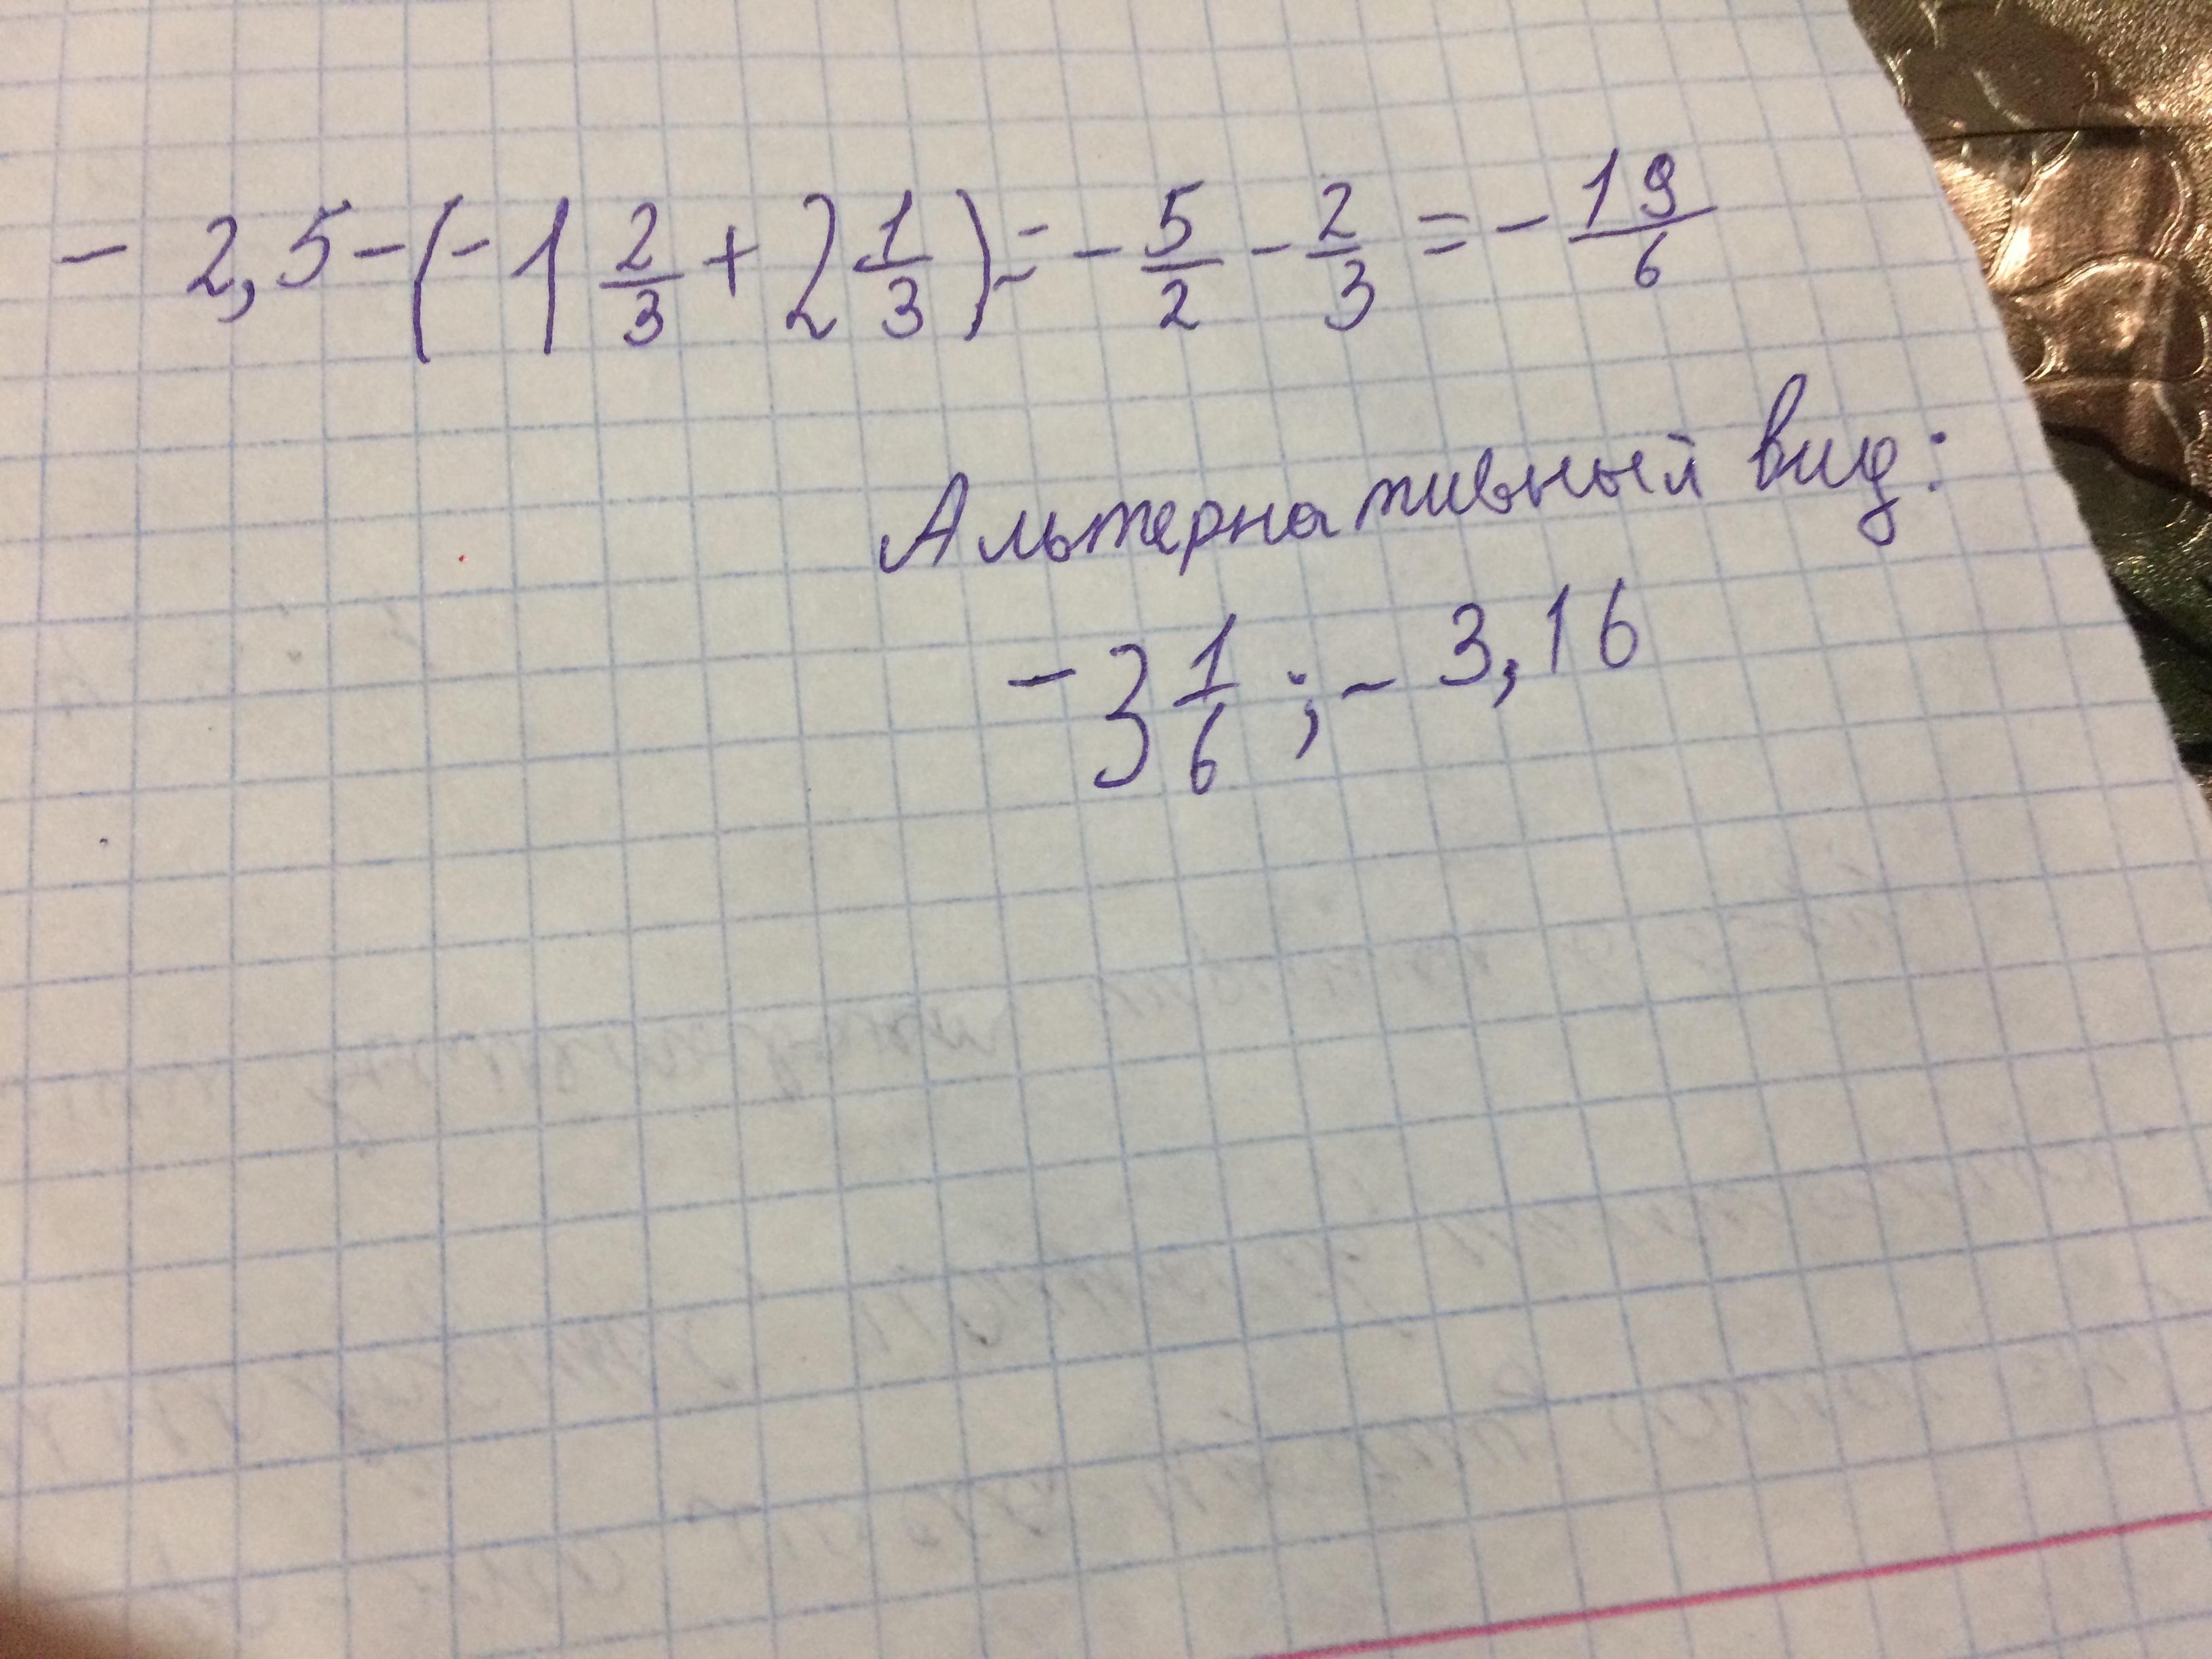 - 2,5 - (-1 2/3 + 2 1/3) = - 5/2 - 2/3 = - 19/6
Альтернативный вид:
- 3 1/6 ; - 3,16